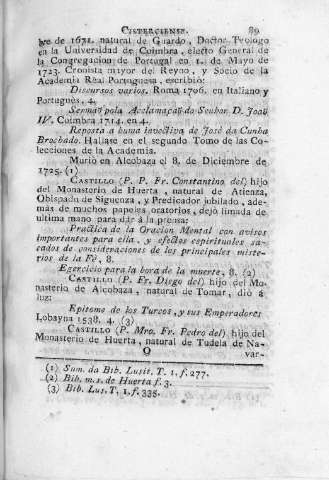 CISTERCIENSE. 89
bre de 1671. natural de Guardo, Doctor Teologo
en la Universidad de Coimbra, electo General de
la Congregacion de Portugal en 1. de Mayo de
1723. Cronista mayor del Reyno, y Socio de la
Academia Real Portuguesa, escribió:
Discursos varios. Roma 1706. en Italiano y
Portugues, 4.
Sermaõ pola Acclamaçaõ do Senhor D. Joaõ
IV. Coimbra 1714. en 4.
Reposta a huma invectiva de José da Cunha
Brochado. Hallase en el segundo Tomo de las Co-
lecciones de la Academia.
Murió en Alcobaza el 8. de Diciembre de
1725. (1)
CASTILLO (P. P. Fr. Constantino del) hijo
del Monasterio de Huerta, natural de Atienza,
Obispado de Siguenza, y Predicador jubilado, ade-
más de muchos papeles oratorios, dejó limada de
ultima mano para dár á la prensa:
Practica de la Oracion Mental con avisos
importantes para ella, y efectos espirituales sa-
cados de consideraciones de los principales miste-
rios de la Fé, 8.
Egercicio para la hora de la muerte, 8. (2)
CASTILLO (P. Fr. Diego del) hijo del Mo-
nasterio de Alcobaza, natural de Tomar, dió á
luz:
Epitome de los Turcos, y sus Emperadores
Lobayna 1538. 4. (3)
CASTILLO (P. Mro. Fr. Pedro del) hijo del
Monasterio de Huerta, natural de Tudela de Na-
O var-
(1) Sum. da Bib. Lusit. T. 1. f. 277.
(2) Bib. m. s. de Huerta f. 3.
(3) Bib. Lus. T. 1. f. 335.